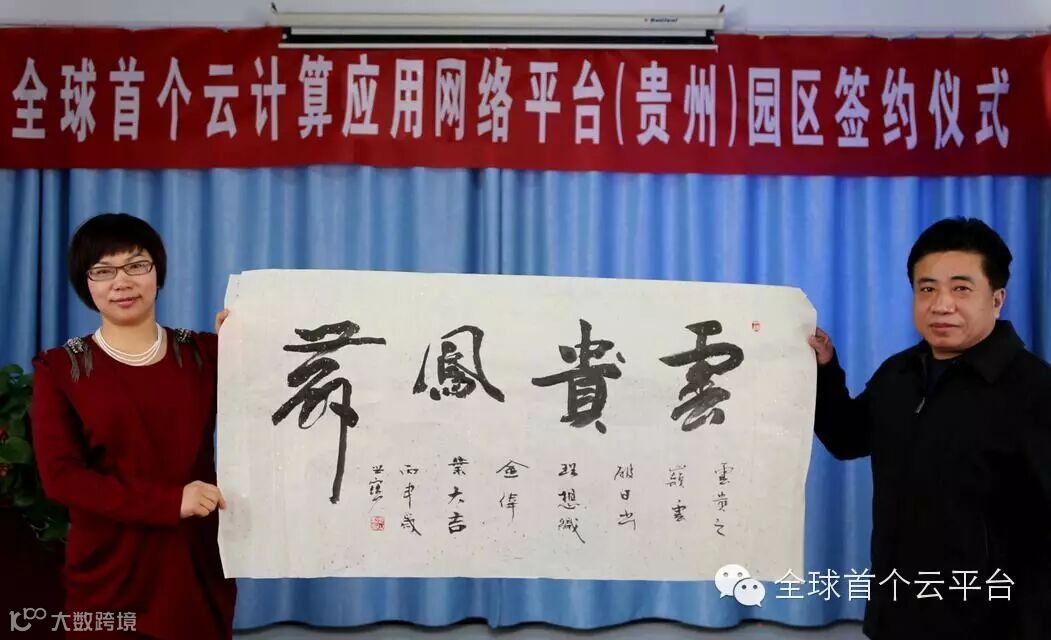 全球首个云计算应用网络平台(贵州)园区签约仪式
雲貴鳳舞
雲貴之
嶺雲
破日出
理想織
金偉
業大吉
丙申歲
世寶
全球首个云平台
大数跨境